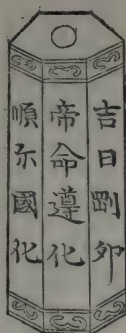 吉日劉卯
帝命遵化
順尓國化